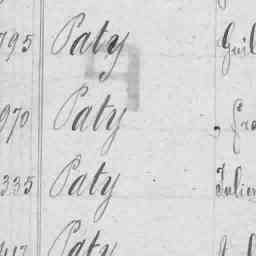 795 Paty Guil
970 Paty Fra
335 Paty Julien
Paty